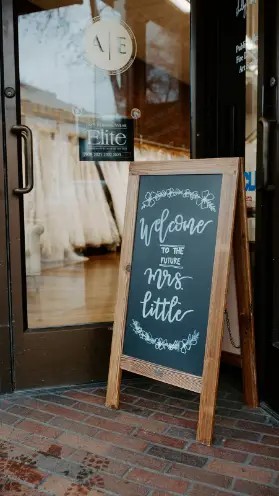 A | E
Elite
Welcome
TO THE
FUTURE
Mrs
little